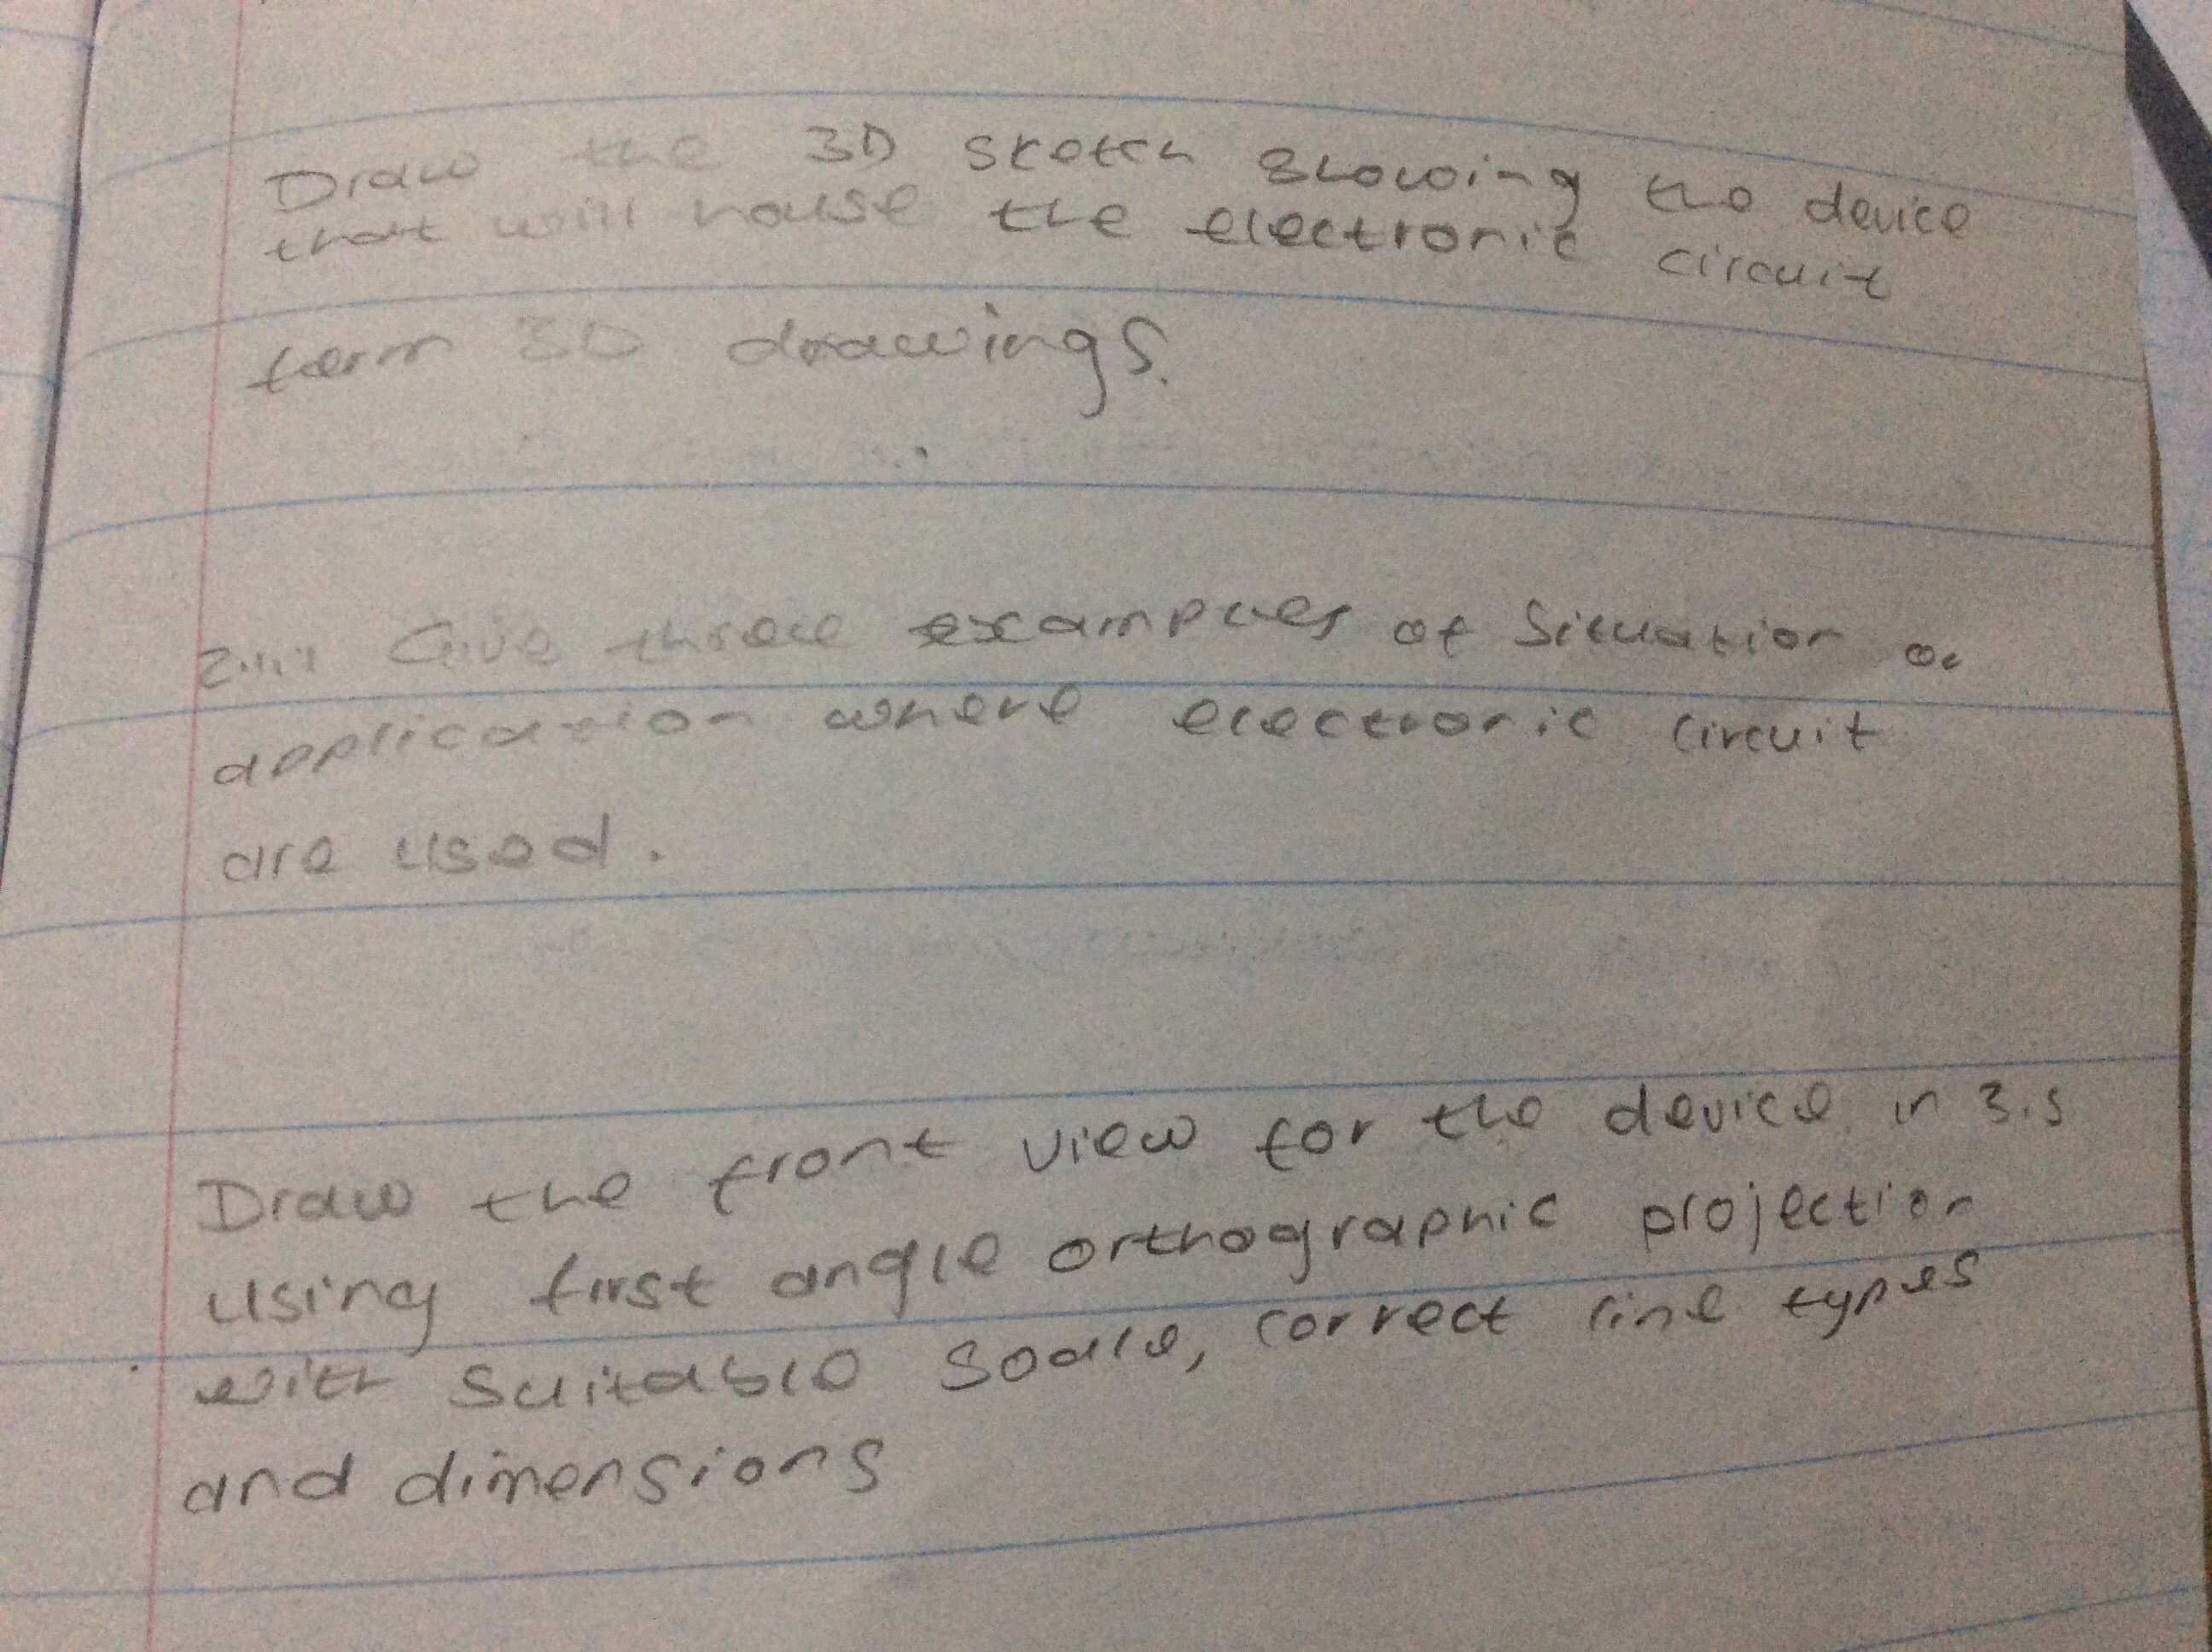 Draw the 3D sketch showing the device
that will house the electronic circuit
form 3D drawings.
2.1.1 Give three examples of situation or
application where electronic circuit
are used.
Draw the front view for the device in 3.5
using first angle orthographic projection
with suitable scale, correct line types
and dimensions